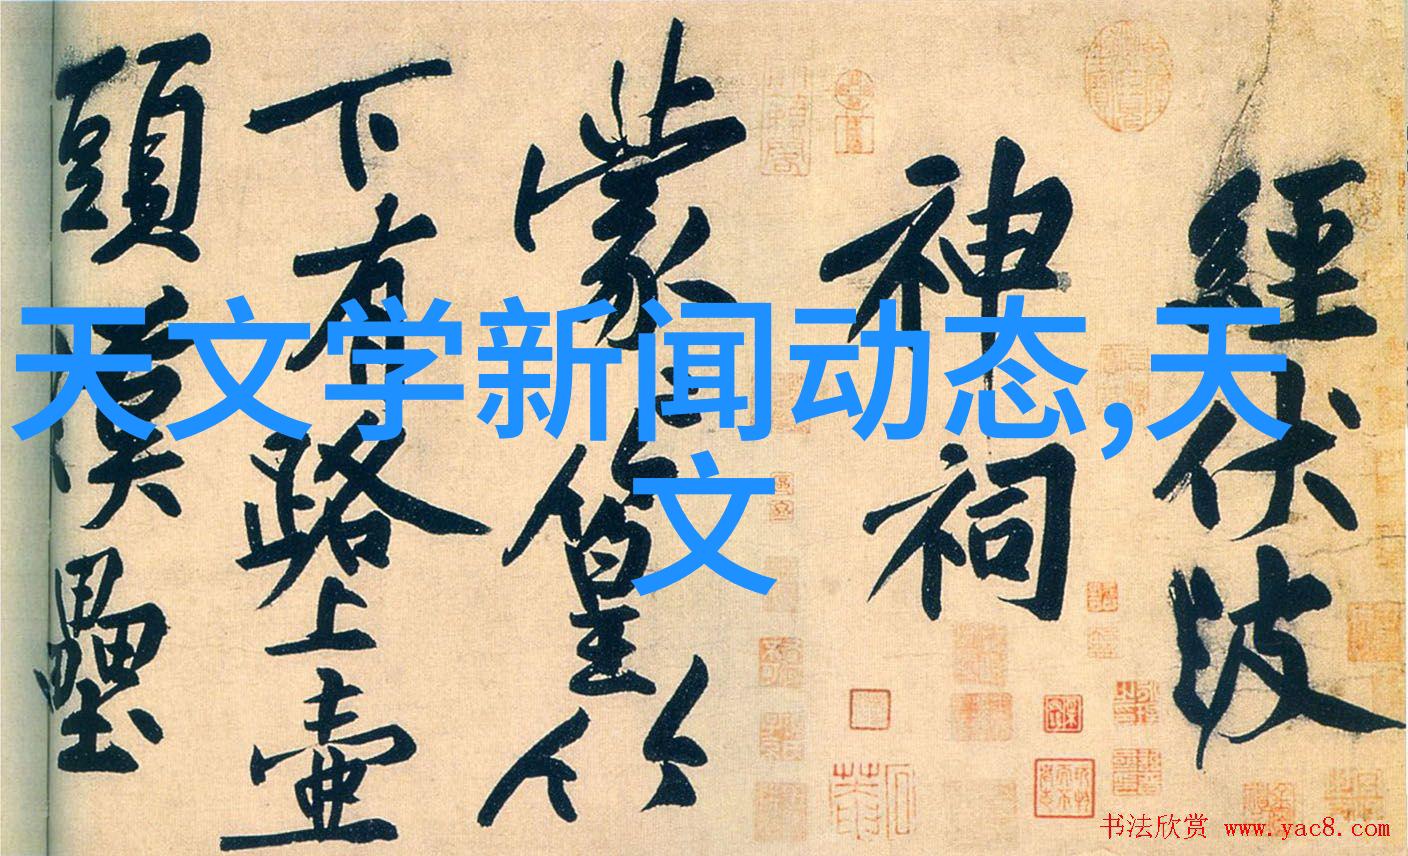 經伏波
神祠
蒙〻篁竹
下有路上壺
頭漢壘
天文学新闻动态,天
文
书法欣赏 www.yac8.com